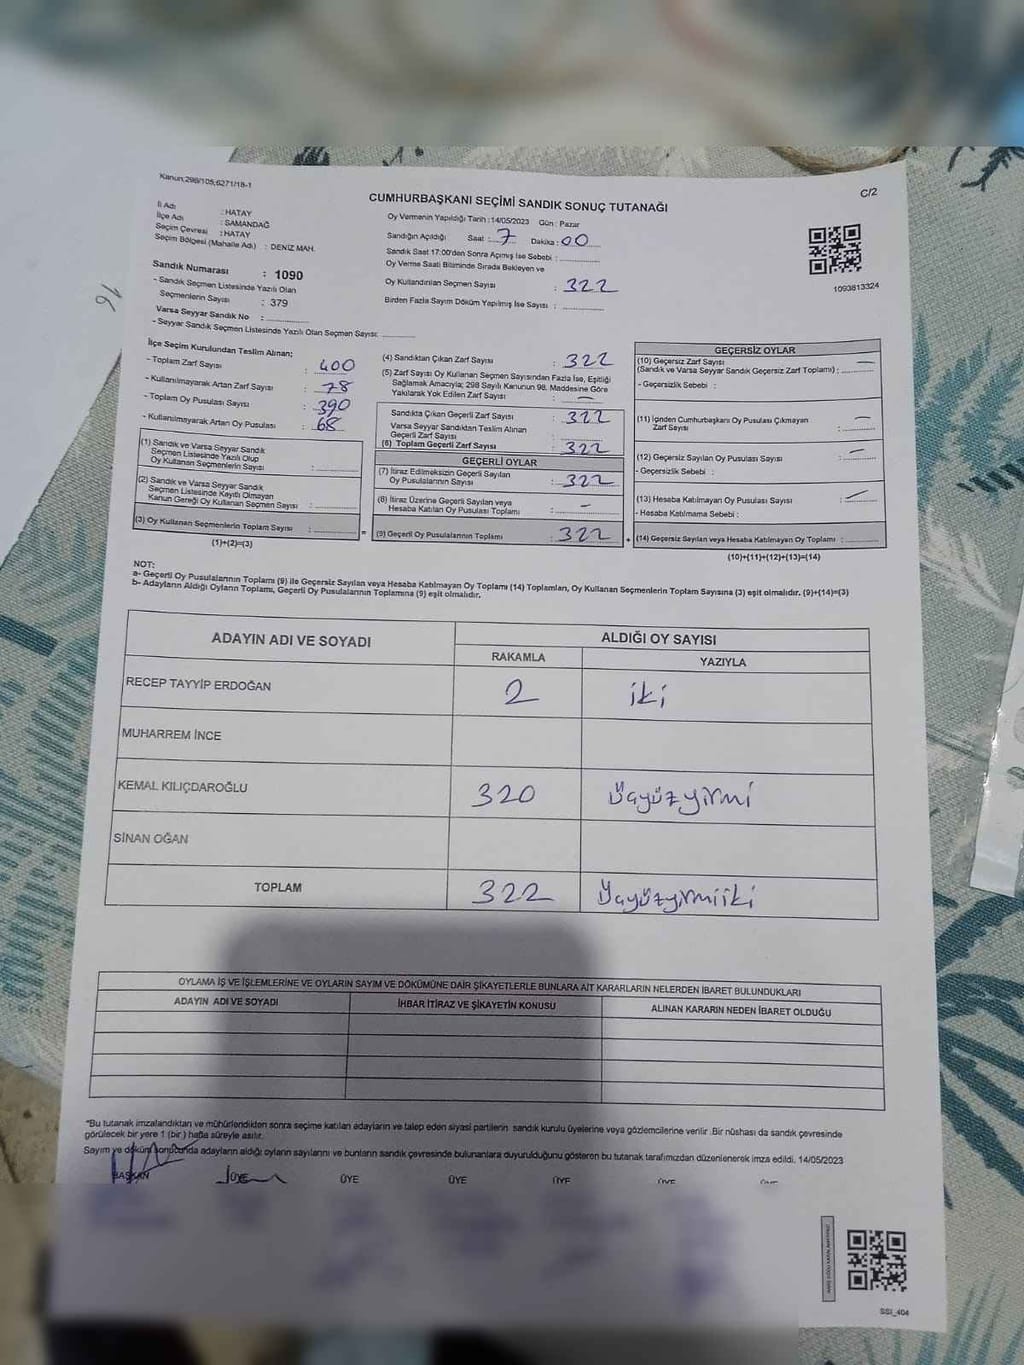 Kanun:298/105;6271/18-1
C/2
CUMHURBAŞKANI SEÇİMİ SANDIK SONUÇ TUTANAĞI
İl Adı : HATAY
İlçe Adı : SAMANDAĞ
Seçim Çevresi : HATAY
Seçim Bölgesi (Mahalle Adı) : DENİZ MAH.
Sandık Numarası : 1090
- Sandık Seçmen Listesinde Yazılı Olan
Seçmenlerin Sayısı : 379
Varsa Seyyar Sandık No :
- Seyyar Sandık Seçmen Listesinde Yazılı Olan Seçmen Sayısı:
Oy Vermenin Yapıldığı Tarih : 14/05/2023 Gün : Pazar
Sandığın Açıldığı Saat : 7 Dakika : 00
Sandık Saat 17:00'den Sonra Açmış İse Sebebi :
Oy Verme Saati Bitiminde Sırada Bekleyen ve
Oy Kullandırılan Seçmen Sayısı : 322
Birden Fazla Sayım Döküm Yapılmış İse Sayısı :
1093813324
16
İlçe Seçim Kurulundan Teslim Alınan;
- Toplam Zarf Sayısı : 400
- Kullanılmayarak Artan Zarf Sayısı : 78
- Toplam Oy Pusulası Sayısı : 390
- Kullanılmayarak Artan Oy Pusulası : 68
(1) Sandık ve Varsa Seyyar Sandık
Seçmen Listesinde Yazılı Olup
Oy Kullanan Seçmenlerin Sayısı :
(2) Sandık ve Varsa Seyyar Sandık
Seçmen Listesinde Kayıtlı Olmayan
Kanun Gereği Oy Kullanan Seçmen Sayısı :
(3) Oy Kullanan Seçmenlerin Toplam Sayısı :
(1)+(2)=(3)
=
(4) Sandıktan Çıkan Zarf Sayısı : 322
(5) Zarf Sayısı Oy Kullanan Seçmen Sayısından Fazla İse, Eşitliği
Sağlamak Amacıyla; 298 Sayılı Kanunun 98. Maddesine Göre
Yakılarak Yok Edilen Zarf Sayısı : —
Sandıkta Çıkan Geçerli Zarf Sayısı : 322
Varsa Seyyar Sandıktan Teslim Alınan
Geçerli Zarf Sayısı :
(6) Toplam Geçerli Zarf Sayısı : 322
GEÇERLİ OYLAR
(7) İtiraz Edilmeksizin Geçerli Sayılan
Oy Pusulalarının Sayısı : 322
(8) İtiraz Üzerine Geçerli Sayılan veya
Hesaba Katılan Oy Pusulası Toplamı : —
(9) Geçerli Oy Pusulalarının Toplamı : 322
+
GEÇERSİZ OYLAR
(10) Geçersiz Zarf Sayısı —
(Sandık ve Varsa Seyyar Sandık Geçersiz Zarf Toplamı) :
- Geçersizlik Sebebi :
(11) İçinden Cumhurbaşkanı Oy Pusulası Çıkmayan
Zarf Sayısı : —
(12) Geçersiz Sayılan Oy Pusulası Sayısı : —
- Geçersizlik Sebebi :
(13) Hesaba Katılmayan Oy Pusulası Sayısı : —
- Hesaba Katılmama Sebebi :
(14) Geçersiz Sayılan veya Hesaba Katılmayan Oy Toplamı :
(10)+(11)+(12)+(13)=(14)
NOT:
a- Geçerli Oy Pusulalarının Toplamı (9) ile Geçersiz Sayılan veya Hesaba Katılmayan Oy Toplamı (14) Toplamları, Oy Kullanan Seçmenlerin Toplam Sayısına (3) eşit olmalıdır. (9)+(14)=(3)
b- Adayların Aldığı Oyların Toplamı, Geçerli Oy Pusulalarının Toplamına (9) eşit olmalıdır.
ADAYIN ADI VE SOYADI
ALDIĞI OY SAYISI
RAKAMLA YAZIYLA
RECEP TAYYİP ERDOĞAN 2 iki
MUHARREM İNCE
KEMAL KILIÇDAROĞLU 320 Üçyüzyirmi
SİNAN OĞAN
TOPLAM 322 Üçyüzyirmiiki
OYLAMA İŞ VE İŞLEMLERİNE VE OYLARIN SAYIM VE DÖKÜMÜNE DAİR ŞİKAYETLERLE BUNLARA AİT KARARLARIN NELERDEN İBARET BULUNDUKLARI
ADAYIN ADI VE SOYADI İHBAR İTİRAZ VE ŞİKAYETİN KONUSU ALINAN KARARIN NEDEN İBARET OLDUĞU
*Bu tutanak imzalandıktan ve mühürlendikten sonra seçime katılan adayların ve talep eden siyasi partilerin sandık kurulu üyelerine veya gözlemcilerine verilir .Bir nüshası da sandık çevresinde
görülecek bir yere 1 (bir ) hafta süreyle asılır.
Sayım ve döküm sonucunda adayların aldığı oyların sayılarını ve bunların sandık çevresinde bulunanlara duyurulduğunu gösteren bu tutanak tarafımızdan düzenlenerek imza edildi. 14/05/2023
BAŞKAN ÜYE ÜYE ÜYE ÜYE ÜYE
SSI_404